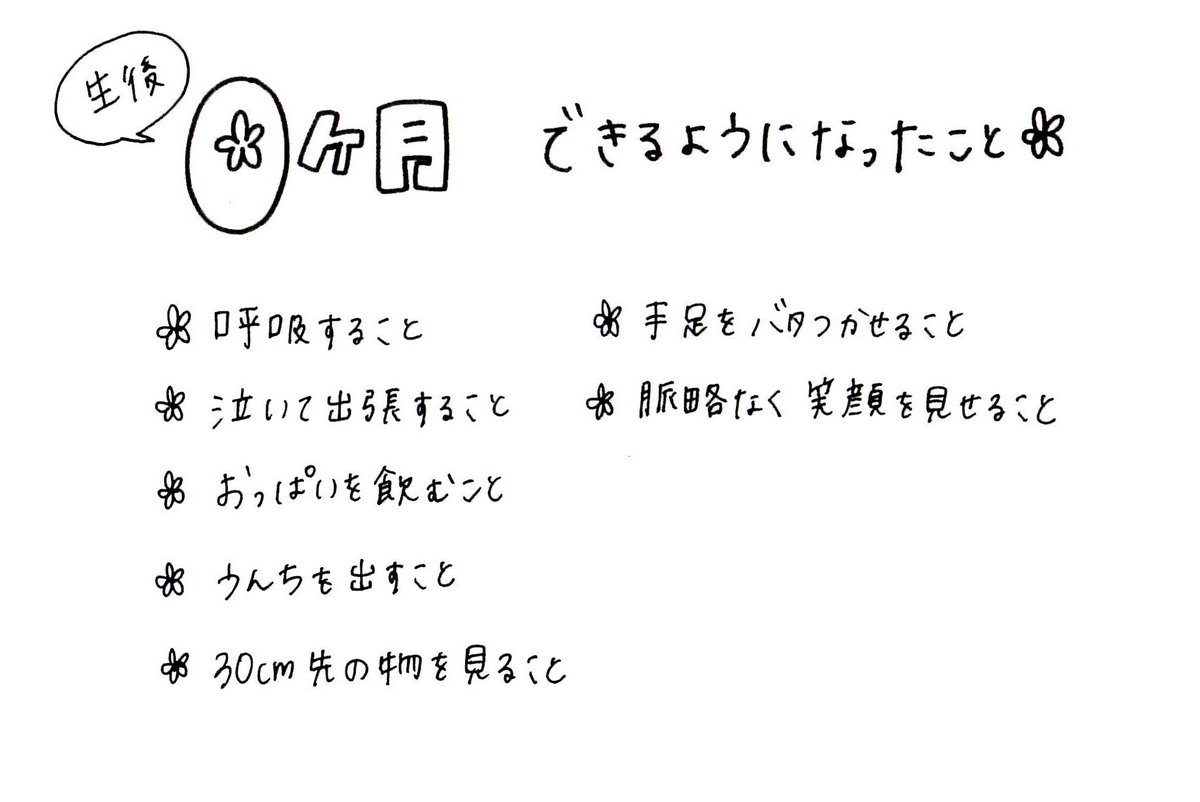 生後
0ヶ月 できるようになったこと
呼吸すること
泣いて出張すること
おっぱいを飲むこと
うんちを出すこと
30cm先の物を見ること
手足をバタつかせること
脈略なく笑顔を見せること